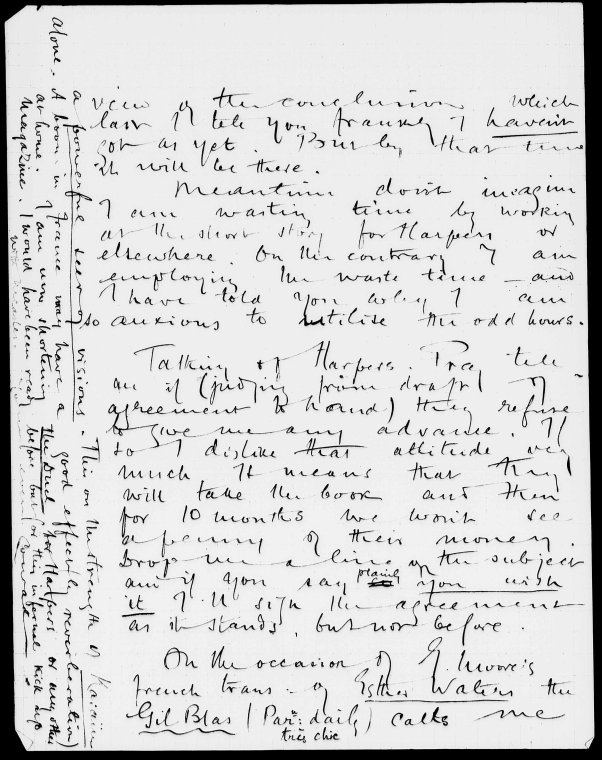 view of the conclusion which
last I tell you frankly I haven't
got as yet. But by that time
it will be there.
Meantime don't imagine
I am wasting time by working
at the short story for Harpers or
elsewhere. On the contrary I am
employing the waste time — and
I have told you why I am
so anxious to utilise the odd hours.
Talking of Harpers. Pray tell
me if (judging from draft of
agreement to hand) they refuse
to give me any advance. If
so I dislike that attitude very
much. It means that they
will take the book and then
for 10 months we won't see
a penny of their money.
Drop me a line on the subject
and if you say plainly you wish
it I'll sign the agreement
as it stands, but not before.
On the occasion of G. Moore's
french trans: of Esther Waters the
Gil Blas (Par: daily) calls me
très chic
a powerful seer of visions. This on the strength of Karain
alone. A boom in France may have a good effect by reverberation
at home. I am now shortening The Duel for Harpers or any other
Magazine. I would have been ready before but for this infernal kick up